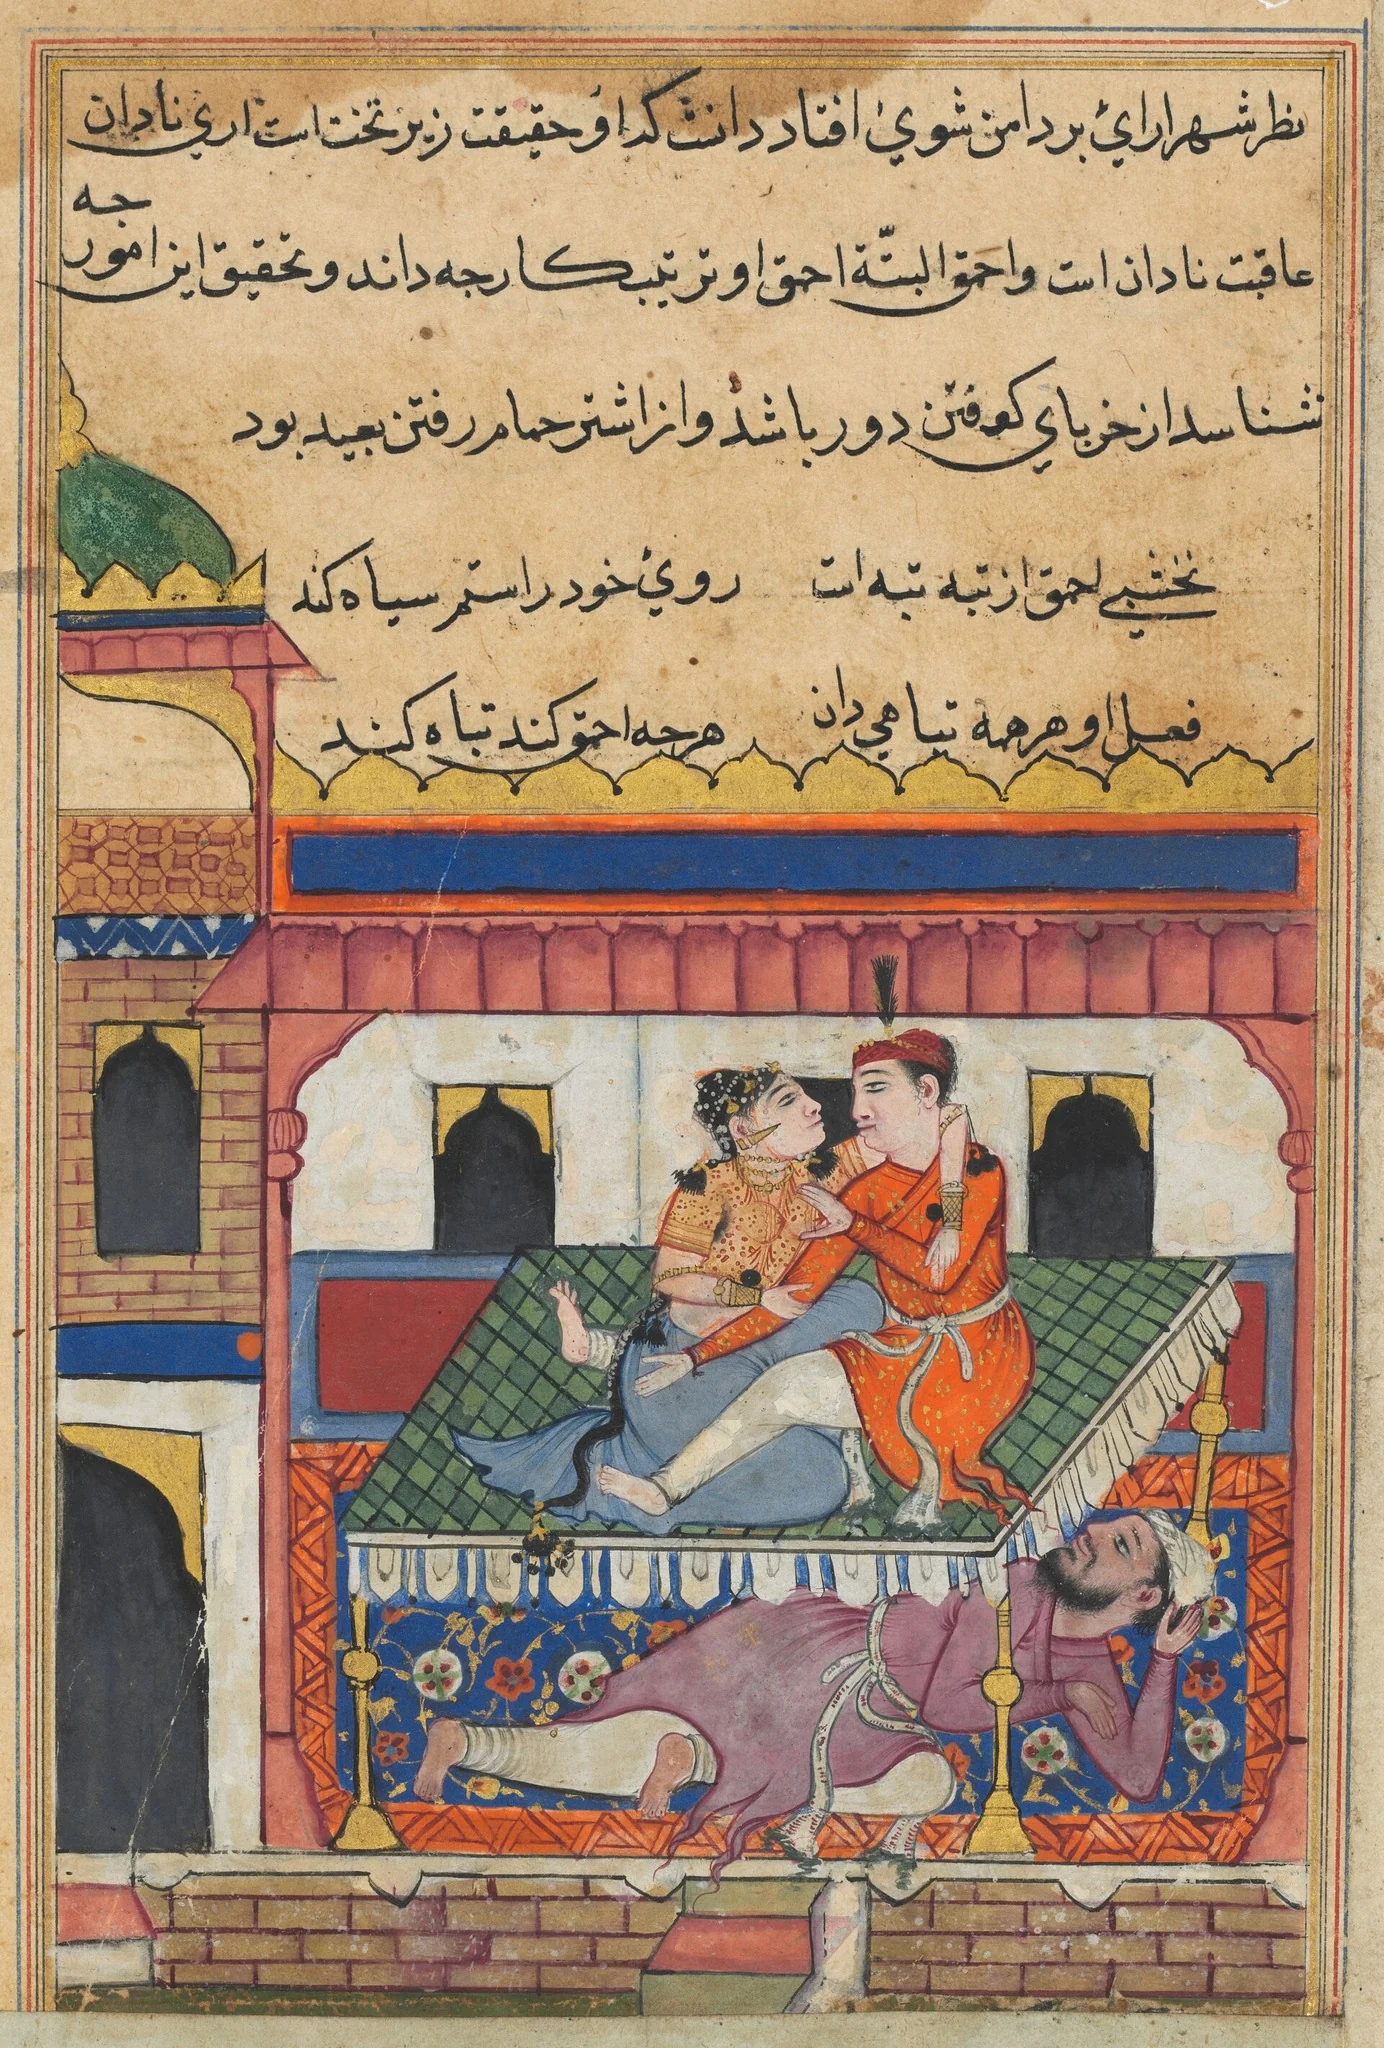 نظر شهرارای بر دامن شوی افتاد دانست که او حقیقت زیر تخت است اری نادان
عاقبت نادان است و احمق البتّة احمق او ترتیب کار جه داند و تحقیق این امور جه
شناسد از خر بای کوفتن دور باشد و از اشتر حمام رفتن بعید بود
نخشبی احمق از تبه تبه است روی خود را ستم سیاه کند
فعل او هر همه تباهی دان هر جه احمق کند تباه کند